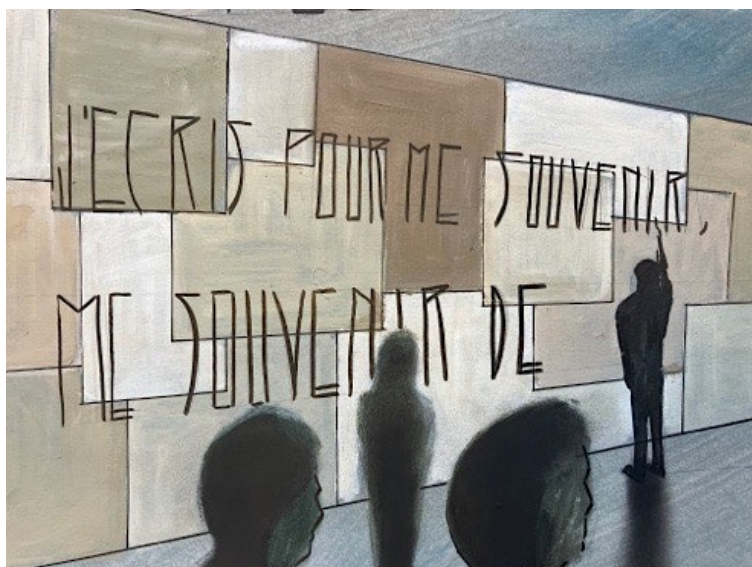 J'ECRIS POUR ME SOUVENIR,
ME SOUVENIR DE